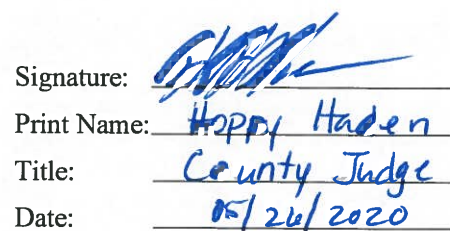 Signature:
Print Name: Hoppy Haden
Title: County Judge
Date: 05/26/2020